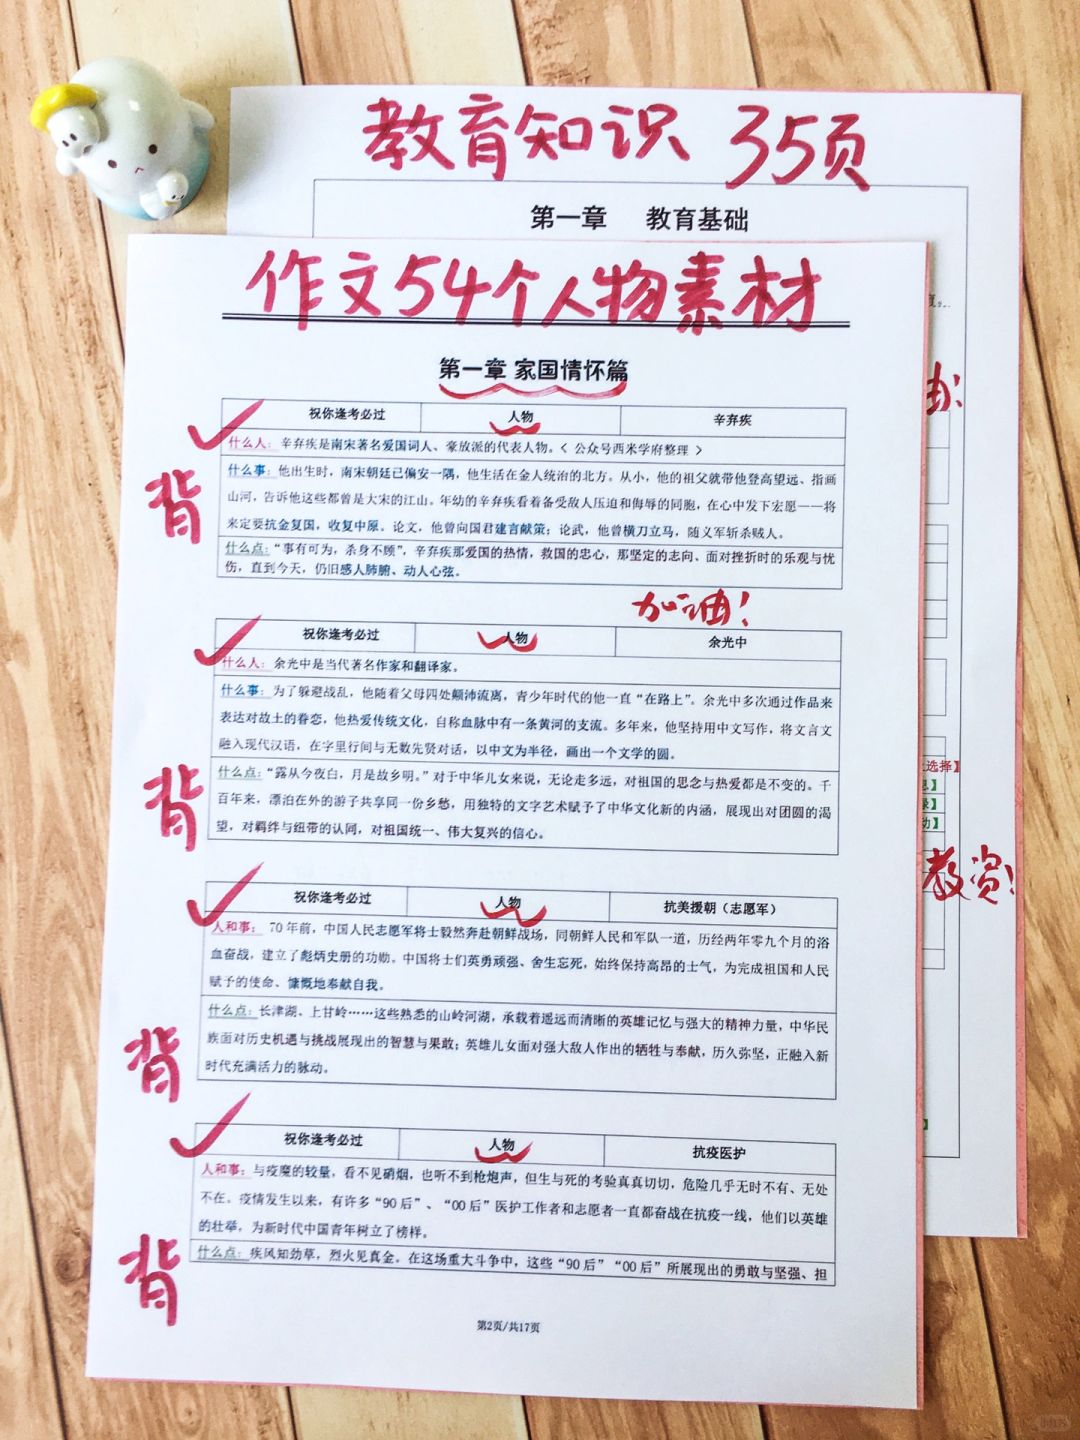 教育知识 35页
第一章 教育基础
作文54个人物素材
第一章 家国情怀篇
祝你逢考必过 人物 辛弃疾
什么人：辛弃疾是南宋著名爱国词人、豪放派的代表人物。< 公众号西米学府整理 >
背
什么事：他出生时，南宋朝廷已偏安一隅，他生活在金人统治的北方。从小，他的祖父就带他登高望远、指画
山河，告诉他这些都曾是大宋的江山。年幼的辛弃疾看着备受敌人压迫和侮辱的同胞，在心中发下宏愿——将
来定要抗金复国，收复中原。论文，他曾向国君建言献策；论武，他曾横刀立马，随义军斩杀贼人。
什么点：“事有可为，杀身不顾”，辛弃疾那爱国的热情，救国的忠心，那坚定的志向、面对挫折时的乐观与忧
伤，直到今天，仍旧感人肺腑、动人心弦。
加油！
祝你逢考必过 人物 余光中
什么人：余光中是当代著名作家和翻译家。
什么事：为了躲避战乱，他随着父母四处颠沛流离，青少年时代的他一直“在路上”。余光中多次通过作品来
表达对故土的眷恋，他热爱传统文化，自称血脉中有一条黄河的支流。多年来，他坚持用中文写作，将文言文
融入现代汉语，在字里行间与无数先贤对话，以中文为半径，画出一个文学的圆。
背
什么点：“露从今夜白，月是故乡明。”对于中华儿女来说，无论走多远，对祖国的思念与热爱都是不变的。千
百年来，漂泊在外的游子共享同一份乡愁，用独特的文字艺术赋予了中华文化新的内涵，展现出对团圆的渴
望，对羁绊与纽带的认同，对祖国统一、伟大复兴的信心。
祝你逢考必过 人物 抗美援朝（志愿军）
人和事：70年前，中国人民志愿军将士毅然奔赴朝鲜战场，同朝鲜人民和军队一道，历经两年零九个月的浴
血奋战，建立了彪炳史册的功勋。中国将士们英勇顽强、舍生忘死，始终保持高昂的士气，为完成祖国和人民
赋予的使命、慷慨地奉献自我。
背
什么点：长津湖、上甘岭……这些熟悉的山岭河湖，承载着遥远而清晰的英雄记忆与强大的精神力量，中华民
族面对历史机遇与挑战展现出的智慧与果敢；英雄儿女面对强大敌人作出的牺牲与奉献，历久弥坚，正融入新
时代充满活力的脉动。
祝你逢考必过 人物 抗疫医护
人和事：与疫魔的较量，看不见硝烟，也听不到枪炮声，但生与死的考验真真切切，危险几乎无时不有、无处
不在。疫情发生以来，有许多“90后”、“00后”医护工作者和志愿者一直都奋战在抗疫一线，他们以英雄
的壮举，为新时代中国青年树立了榜样。
背
什么点：疾风知劲草，烈火见真金。在这场重大斗争中，这些“90后”“00后”所展现出的勇敢与坚强、担
第2页/共17页
油！
选择】
动】
教资！
小红书